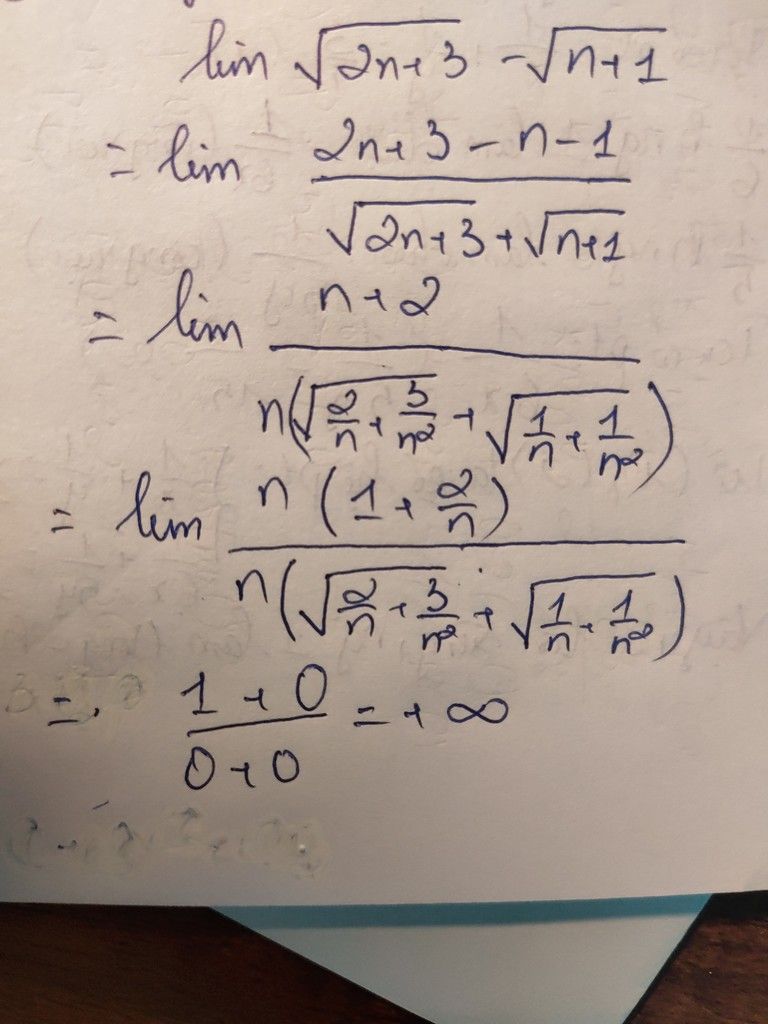 lim √(2n+3) - √(n+1)
= lim (2n+3 - n - 1) / (√(2n+3) + √(n+1))
= lim (n+2) / (n(√(2/n + 3/n²) + √(1/n + 1/n²)))
= lim (n(1 + 2/n)) / (n(√(2/n + 3/n²) + √(1/n + 1/n²)))
= (1+0)/(0+0) = +∞